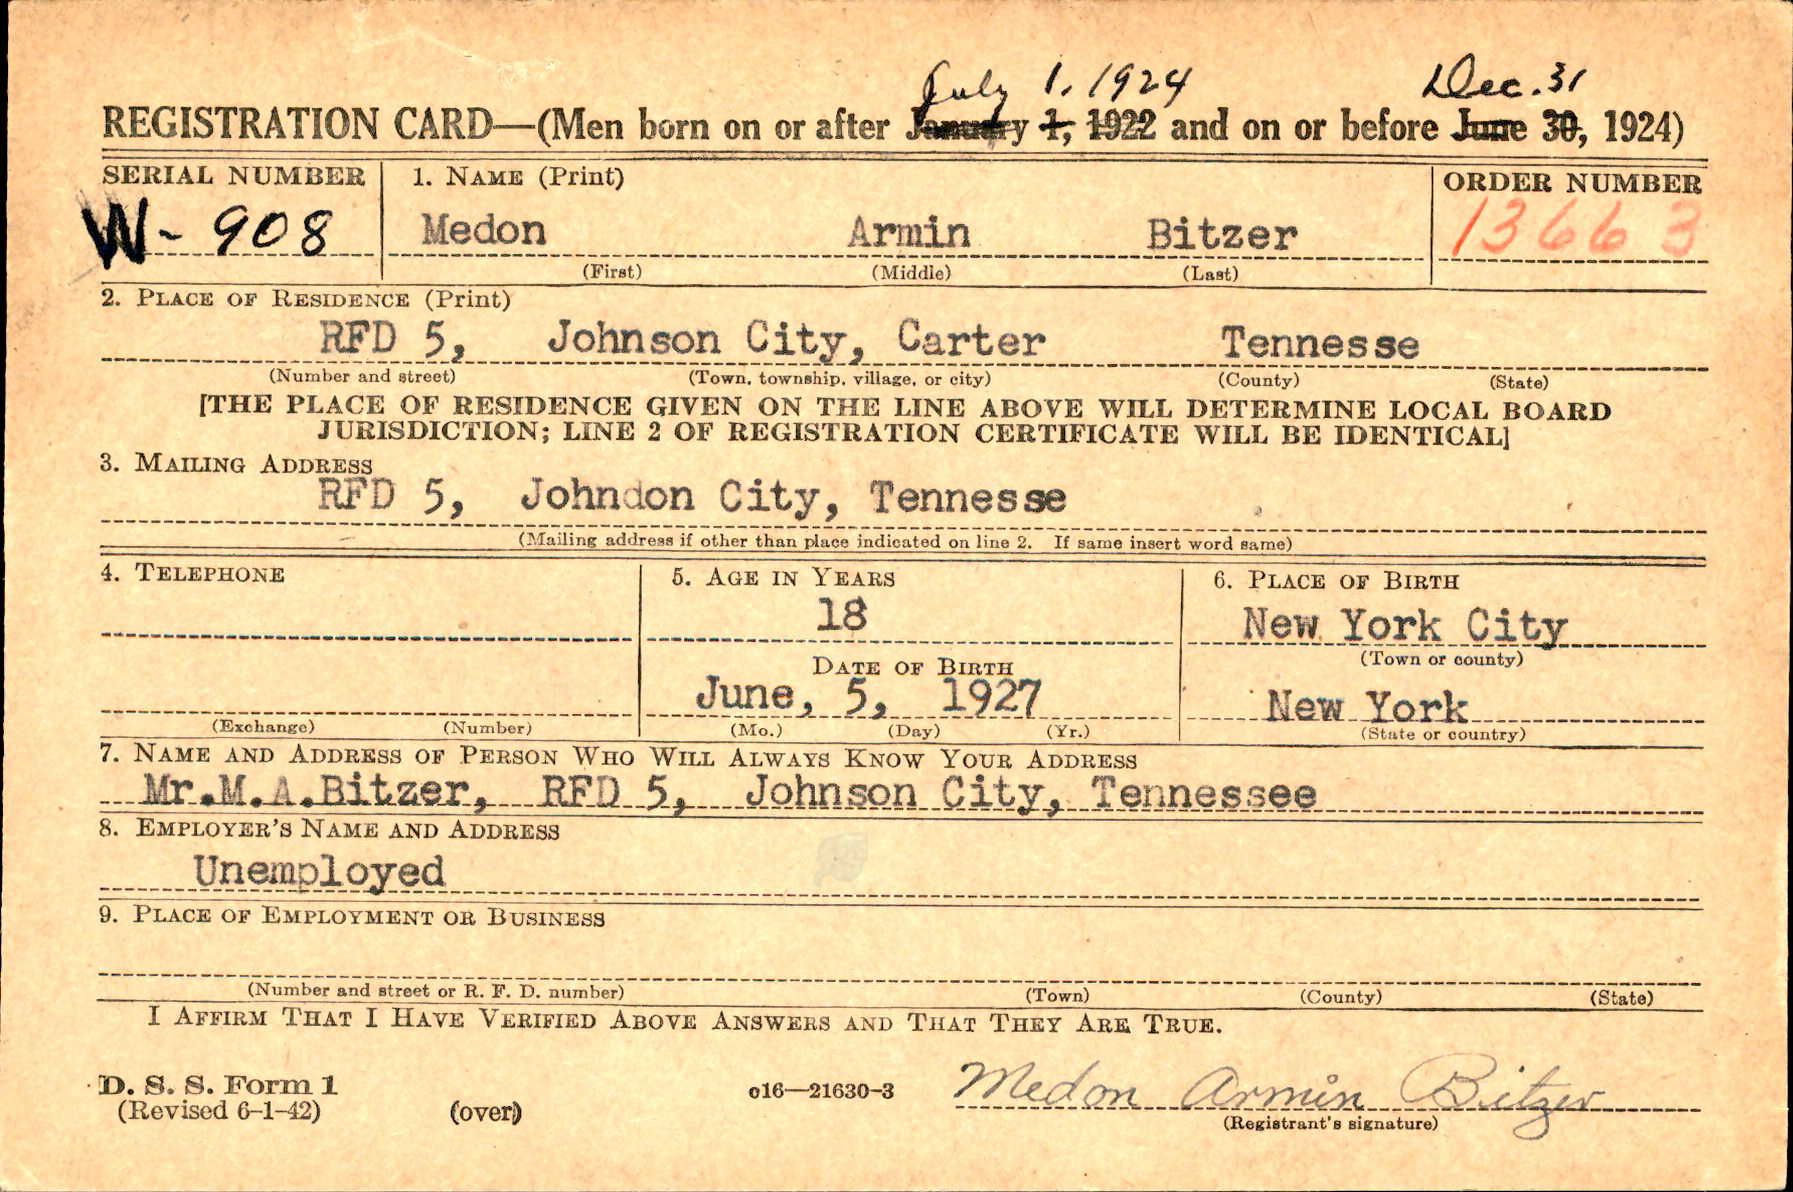 July 1, 1924 Dec. 31
REGISTRATION CARD—(Men born on or after January 1, 1922 and on or before June 30, 1924)
SERIAL NUMBER 1. NAME (Print) ORDER NUMBER
W- 908 Medon Armin Bitzer 13663
(First) (Middle) (Last)
2. PLACE OF RESIDENCE (Print)
RFD 5, Johnson City, Carter Tennesse
(Number and street) (Town, township, village, or city) (County) (State)
[THE PLACE OF RESIDENCE GIVEN ON THE LINE ABOVE WILL DETERMINE LOCAL BOARD
JURISDICTION; LINE 2 OF REGISTRATION CERTIFICATE WILL BE IDENTICAL]
3. MAILING ADDRESS
RFD 5, Johndon City, Tennesse
(Mailing address if other than place indicated on line 2. If same insert word same)
4. TELEPHONE 5. AGE IN YEARS 6. PLACE OF BIRTH
18 New York City
(Town or county)
DATE OF BIRTH
June, 5, 1927 New York
(Exchange) (Number) (Mo.) (Day) (Yr.) (State or country)
7. NAME AND ADDRESS OF PERSON WHO WILL ALWAYS KNOW YOUR ADDRESS
Mr.M.A.Bitzer, RFD 5, Johnson City, Tennessee
8. EMPLOYER'S NAME AND ADDRESS
Unemployed
9. PLACE OF EMPLOYMENT OR BUSINESS
(Number and street or R. F. D. number) (Town) (County) (State)
I AFFIRM THAT I HAVE VERIFIED ABOVE ANSWERS AND THAT THEY ARE TRUE.
D. S. S. Form 1
(Revised 6-1-42) (over) o16—21630-3 Medon Armin Bitzer
(Registrant's signature)